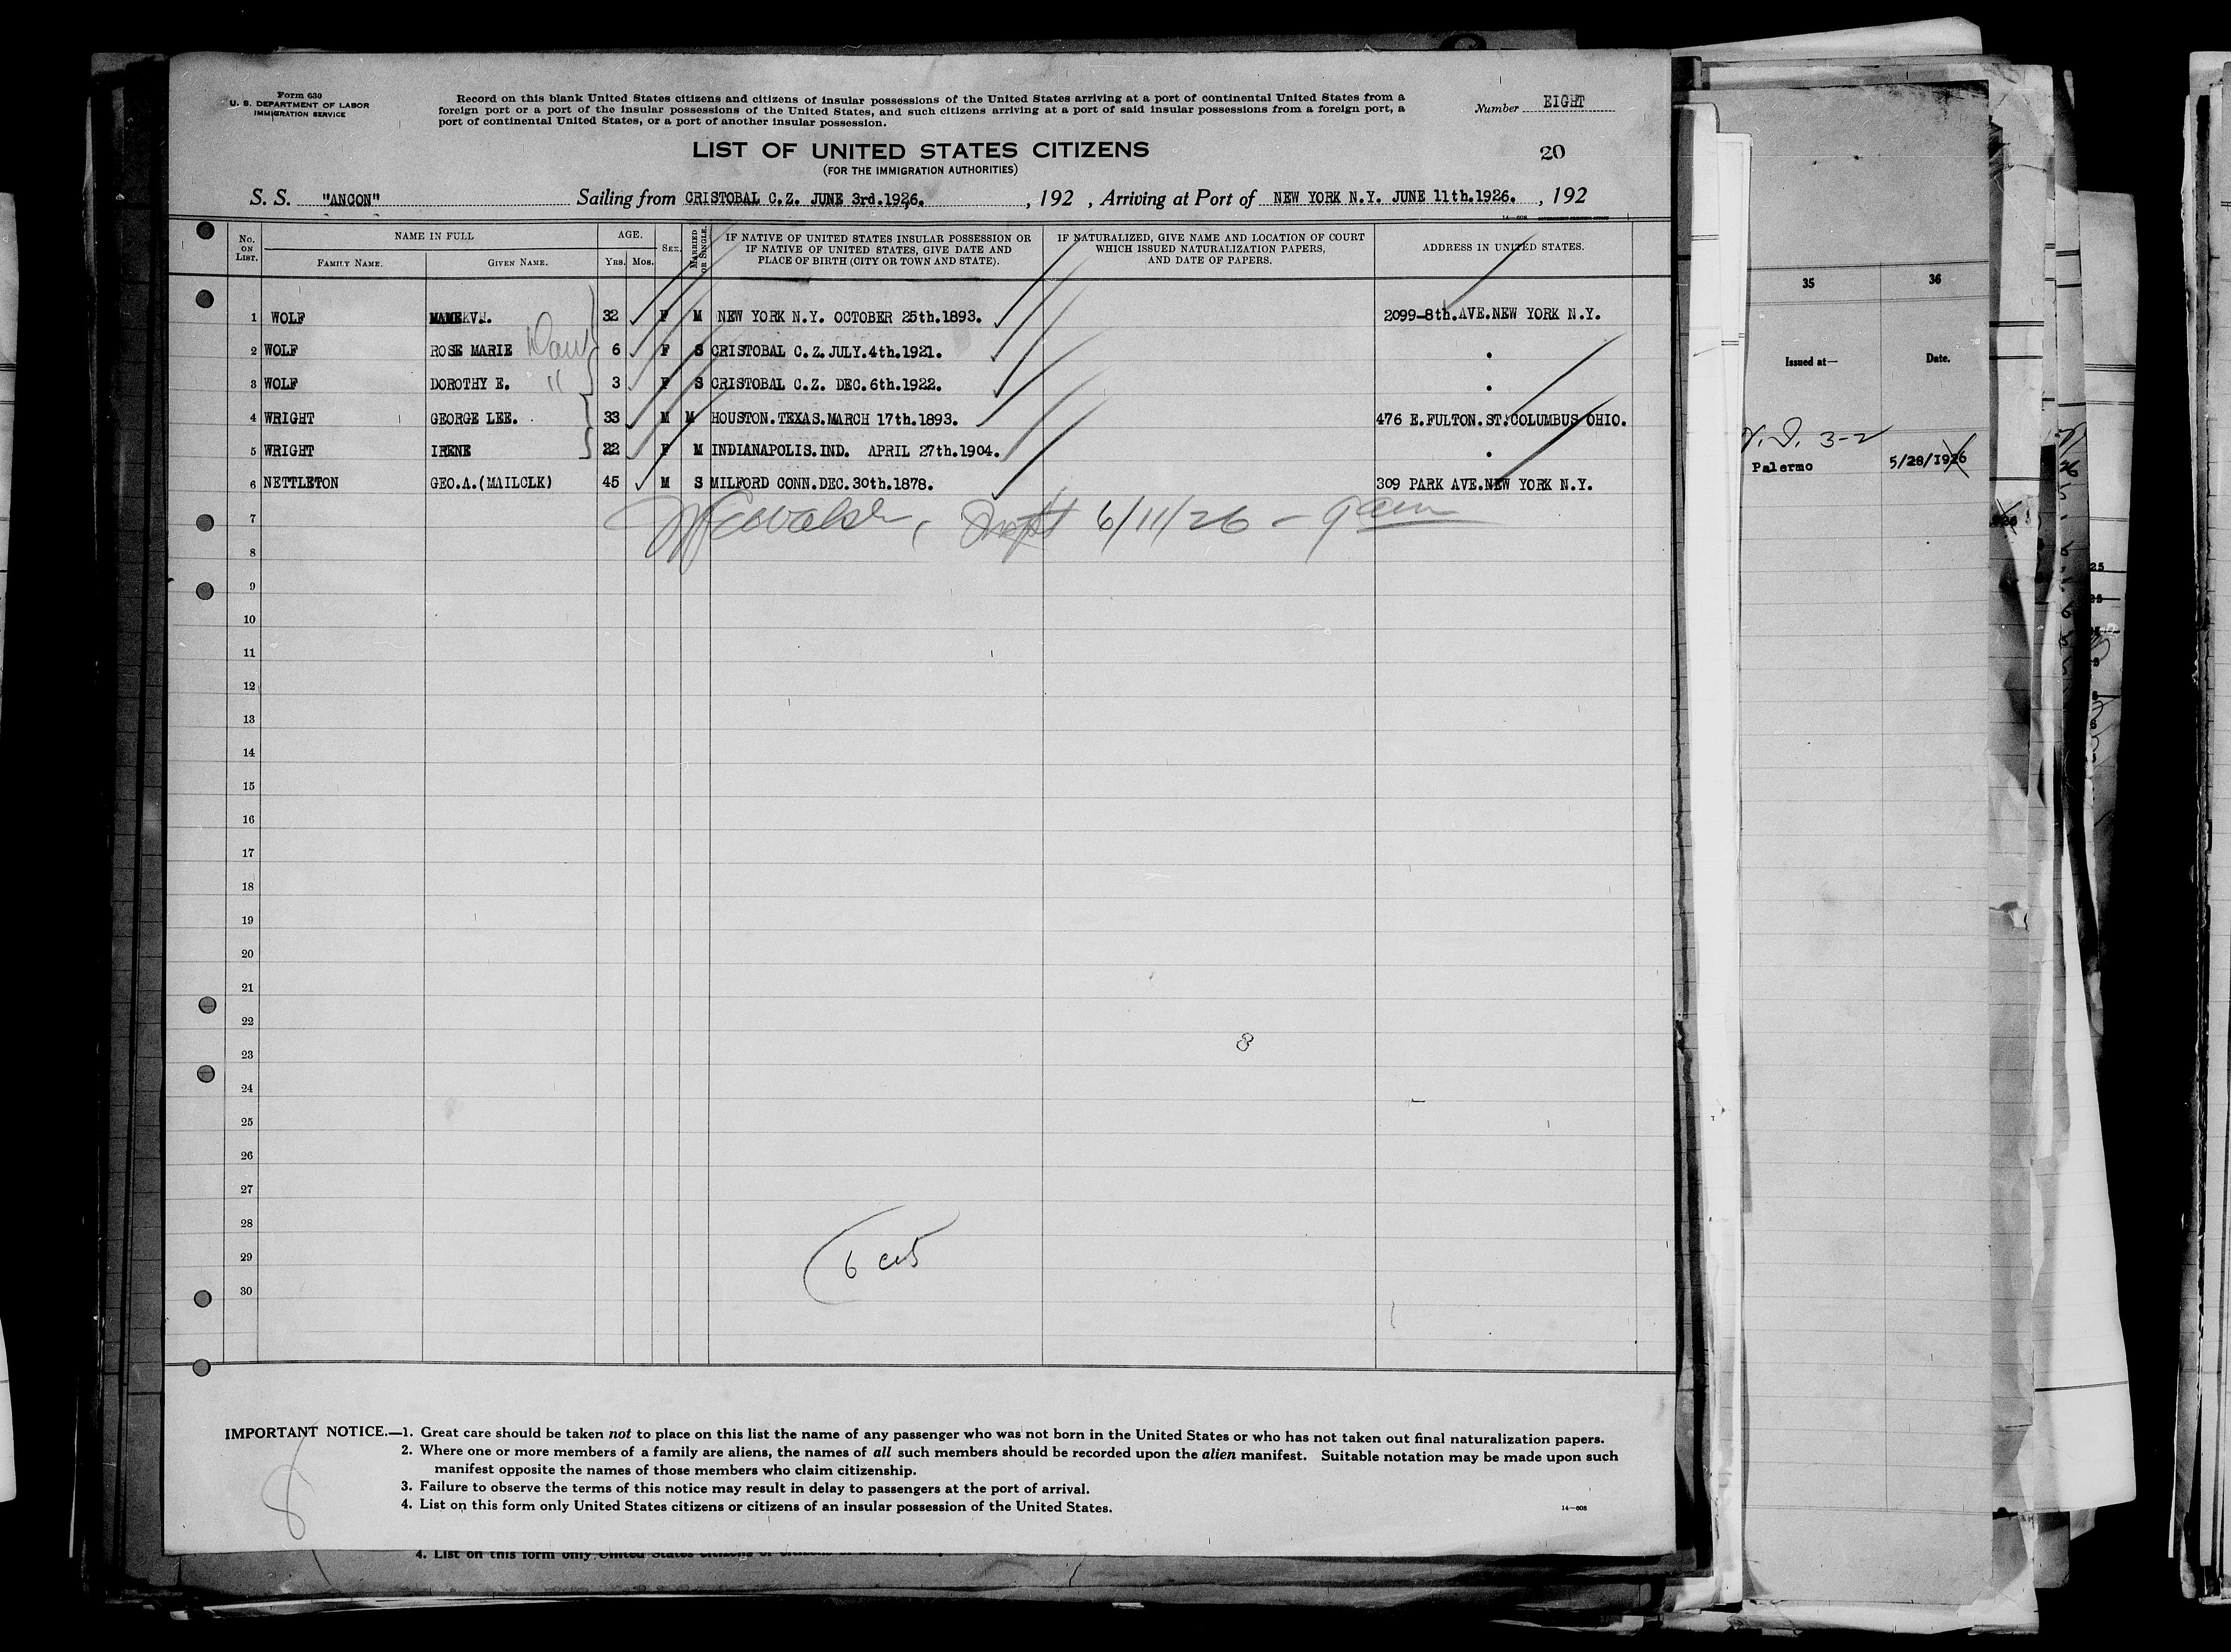 Form 630
U. S. DEPARTMENT OF LABOR
IMMIGRATION SERVICE
Record on this blank United States citizens and citizens of insular possessions of the United States arriving at a port of continental United States from a
foreign port or a port of the insular possessions of the United States, and such citizens arriving at a port of said insular possessions from a foreign port, a
port of continental United States, or a port of another insular possession.
Number EIGHT
LIST OF UNITED STATES CITIZENS
(FOR THE IMMIGRATION AUTHORITIES)
20
S. S. "ANCON" Sailing from CRISTOBAL C.Z. JUNE 3rd.1926. , 192 , Arriving at Port of NEW YORK N.Y. JUNE 11th.1926. , 192
14—608
No. ON LIST. NAME IN FULL FAMILY NAME. GIVEN NAME. AGE. YRS. MOS. SEX. MARRIED OR SINGLE. IF NATIVE OF UNITED STATES INSULAR POSSESSION OR IF NATIVE OF UNITED STATES, GIVE DATE AND PLACE OF BIRTH (CITY OR TOWN AND STATE). IF NATURALIZED, GIVE NAME AND LOCATION OF COURT WHICH ISSUED NATURALIZATION PAPERS, AND DATE OF PAPERS. ADDRESS IN UNITED STATES.
1 WOLF 32 F M NEW YORK N.Y. OCTOBER 25th.1893. 2099-8th.AVE.NEW YORK N.Y.
2 WOLF ROSE MARIE Dau 6 F S CRISTOBAL C.Z.JULY.4th.1921. "
3 WOLF DOROTHY E. " 3 F S CRISTOBAL C.Z. DEC.6th.1922. "
4 WRIGHT GEORGE LEE. 33 M M HOUSTON.TEXAS.MARCH 17th.1893. 476 E.FULTON.ST.COLUMBUS OHIO.
5 WRIGHT IRENE 22 F M INDIANAPOLIS.IND. APRIL 27th.1904. "
6 NETTLETON GEO.A.(MAILCLK) 45 M S MILFORD CONN.DEC.30th.1878. 309 PARK AVE.NEW YORK N.Y.
7 Walsh, Inspt 6/11/26 - 9 am
8
9
10
11
12
13
14
15
16
17
18
19
20
21
22
23 8
24
25
26
27
28
29 6
30
IMPORTANT NOTICE.—1. Great care should be taken not to place on this list the name of any passenger who was not born in the United States or who has not taken out final naturalization papers.
2. Where one or more members of a family are aliens, the names of all such members should be recorded upon the alien manifest. Suitable notation may be made upon such
manifest opposite the names of those members who claim citizenship.
3. Failure to observe the terms of this notice may result in delay to passengers at the port of arrival.
4. List on this form only United States citizens or citizens of an insular possession of the United States.
14—608
8
4. List on this form only United States citizens
35 36
Issued at— Date.
3-2
Palermo 5/28/1926